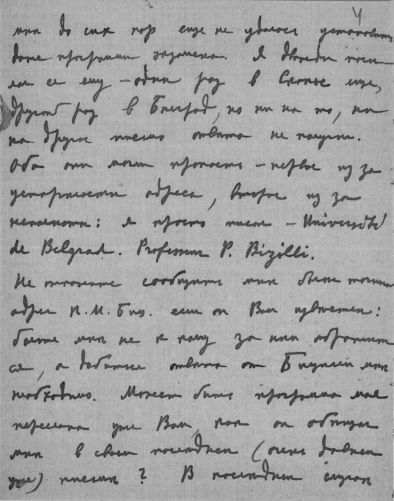 4
мнѣ до сих пор еще не удалось установить
даже программы экзамена. Я дважды писал
ему — один раз в Скопье еще,
другой раз в Белград, но ни на то, ни
на другое письмо ответа не получил.
Оба они могли пропасть — первое из за
устарелости адреса, второе из за
неполноты: я просто писал — Université
de Belgrad. Professeur P. Bizilli.
Не откажите сообщить мнѣ более точный
адрес П. М. Биц. если он Вам известен:
больше мнѣ не к кому за ним обратить
ся, а добиться ответа от Бицилли мнѣ
необходимо. Может быть программа мне
переслана уже Вам, как он обещал
мнѣ в своем последнем (очень давнем
уже) письме? В последнем случае